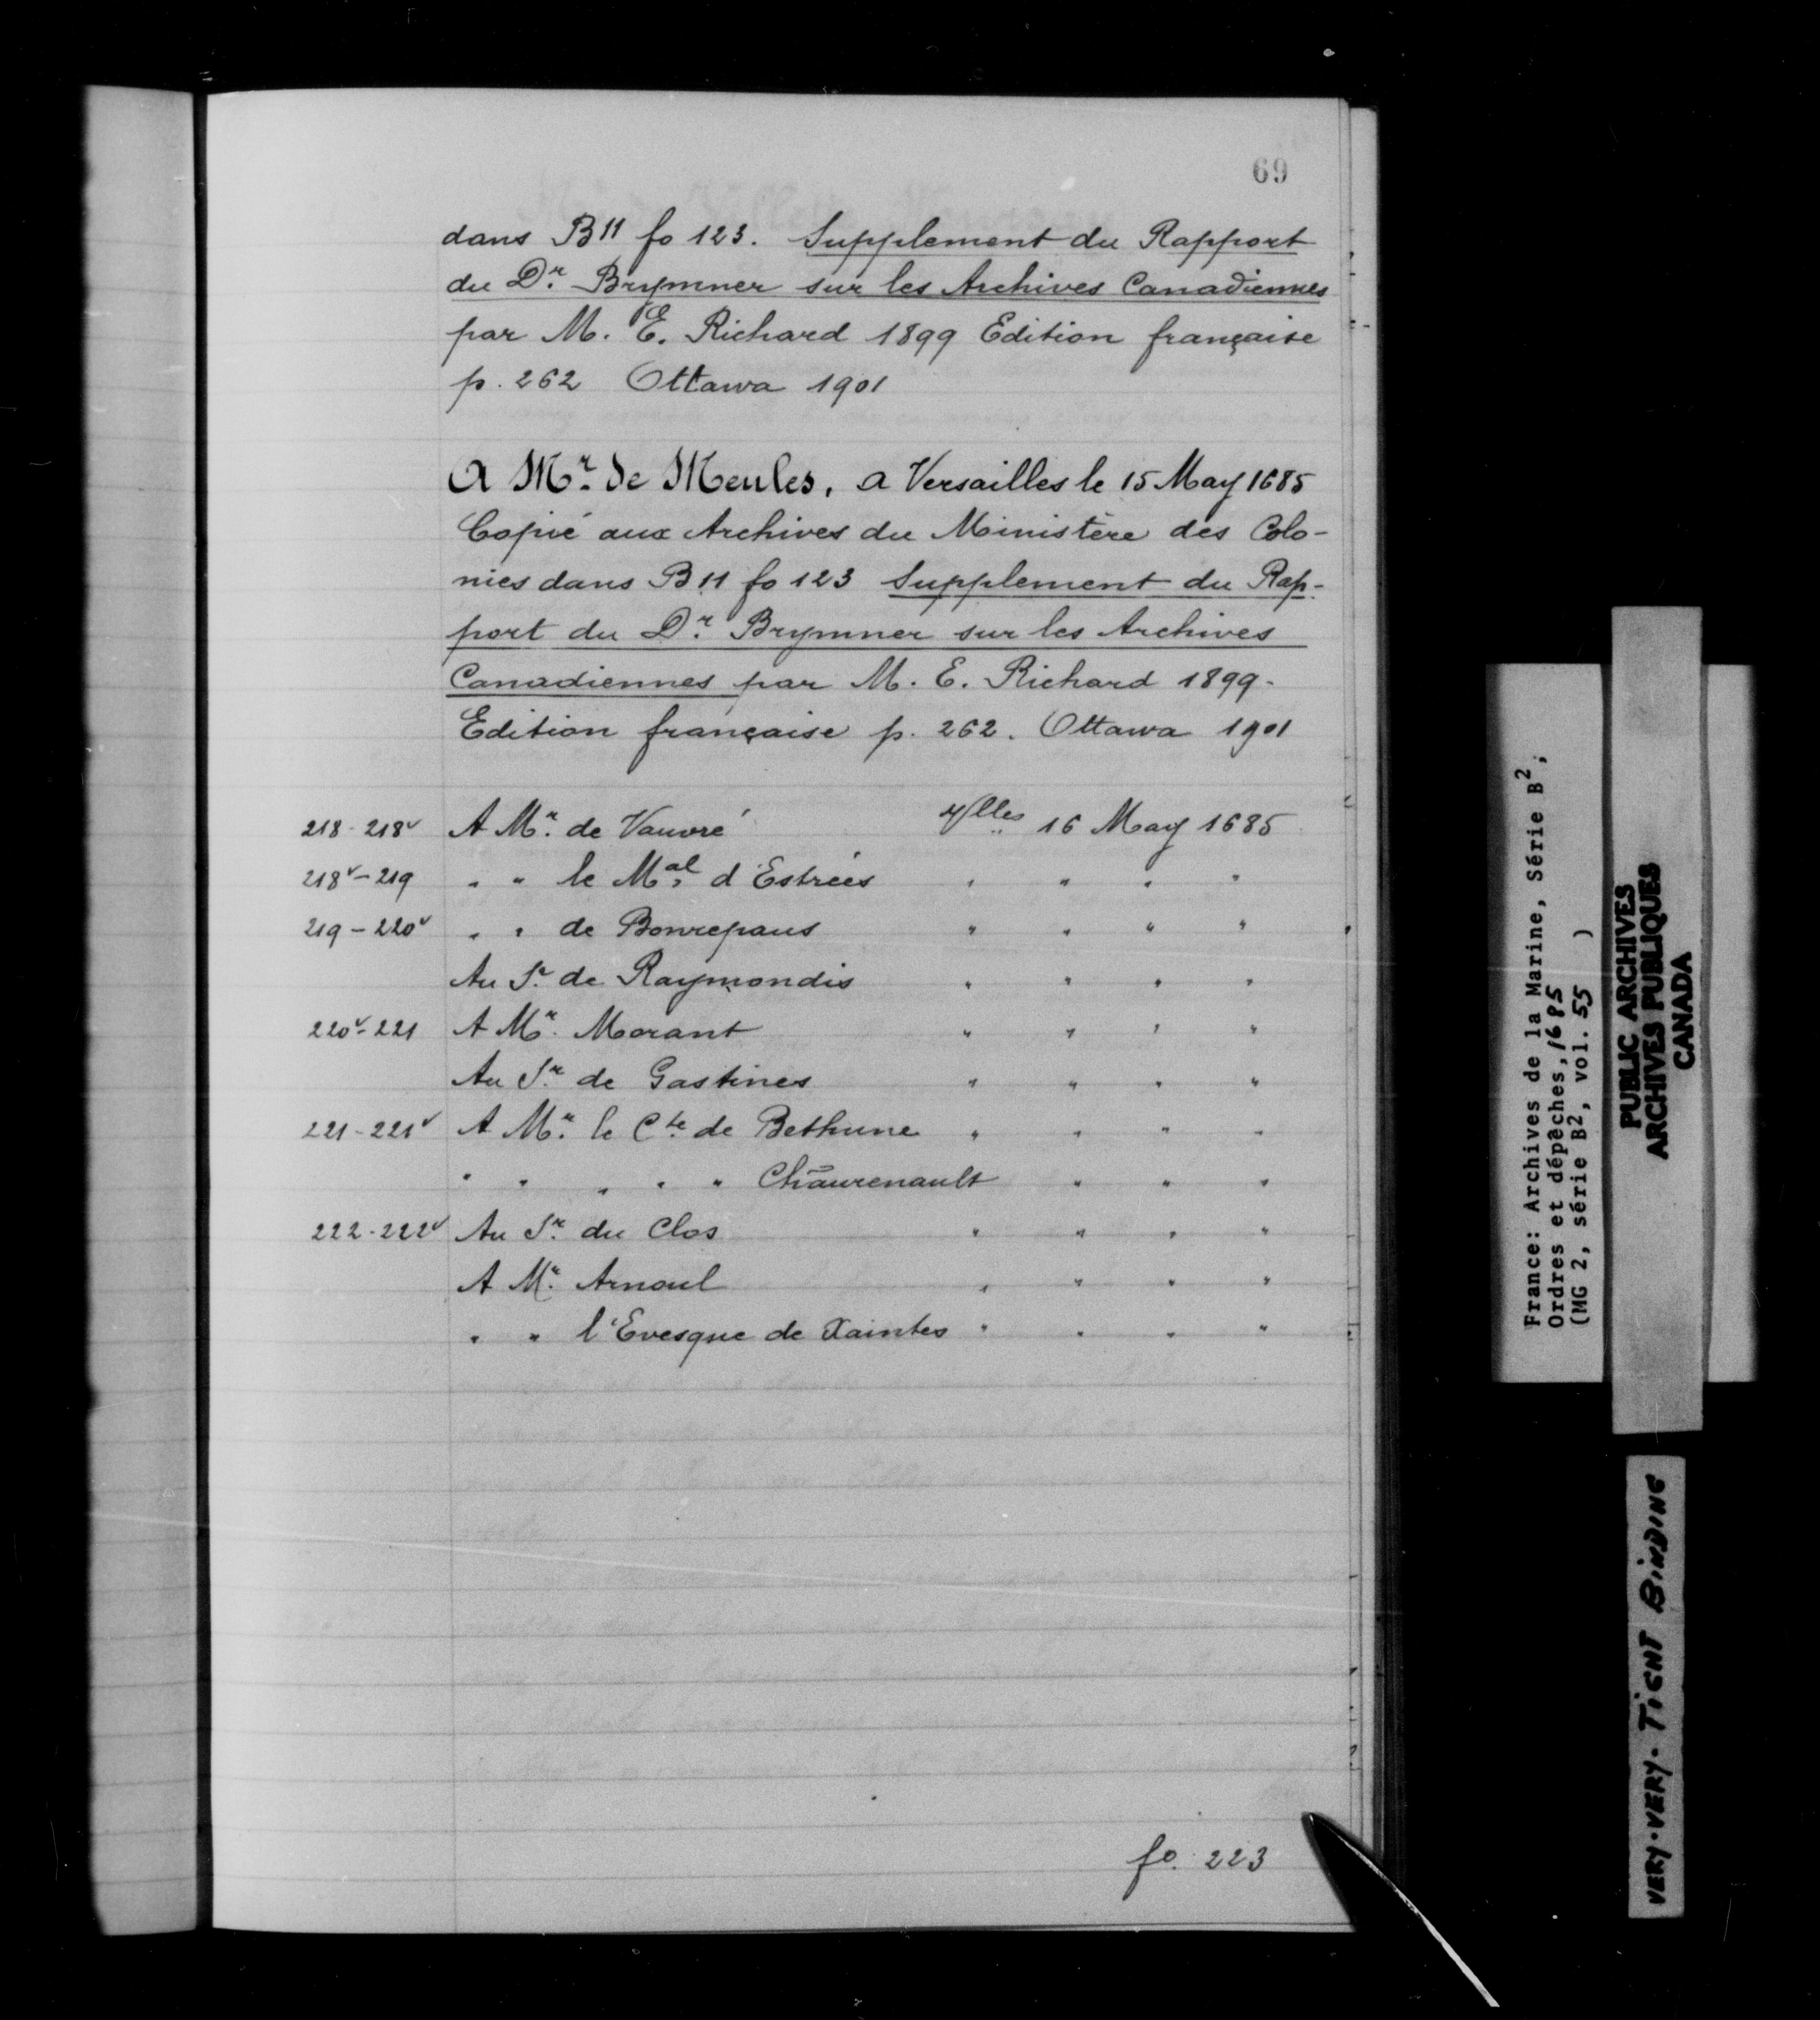 69
dans B11 fo 123. Supplement du Rapport
du Dr. Brymner sur les Archives Canadiennes
par M. E. Richard 1899 Edition française
p. 262 Ottawa 1901
A Mr. de Meules, a Versailles le 15 May 1685
Copié aux Archives du Ministère des Colo-
nies dans B11 fo 123 Supplement du Rap-
port du Dr. Brymner sur les Archives
Canadiennes par M. E. Richard 1899-
Edition française p. 262. Ottawa 1901
218-218v A Mr. de Vauvré Vlles 16 May 1685
218v-219 " " le Mal. d'Estrées " " " "
219-220v " " de Bonrepaus " " " "
Au Sr. de Raymondis " " " "
220v-221 A Mr. Morant " " " "
Au Sr. de Gastines " " " "
221-221v A Mr. le Cte. de Bethune " " " "
" " " " " Chāurenault " " "
222-222v Au Sr. du Clos " " " "
A Mr. Arnoul " " " "
" " l'Evesque de Xaintes " " " "
fo. 223
France: Archives de la Marine, Série B2,
Ordres et dépêches, 1685
(MG 2, série B2, vol. 55 )
PUBLIC ARCHIVES
ARCHIVES PUBLIQUES
CANADA
VERY-VERY-TIGHT BINDING